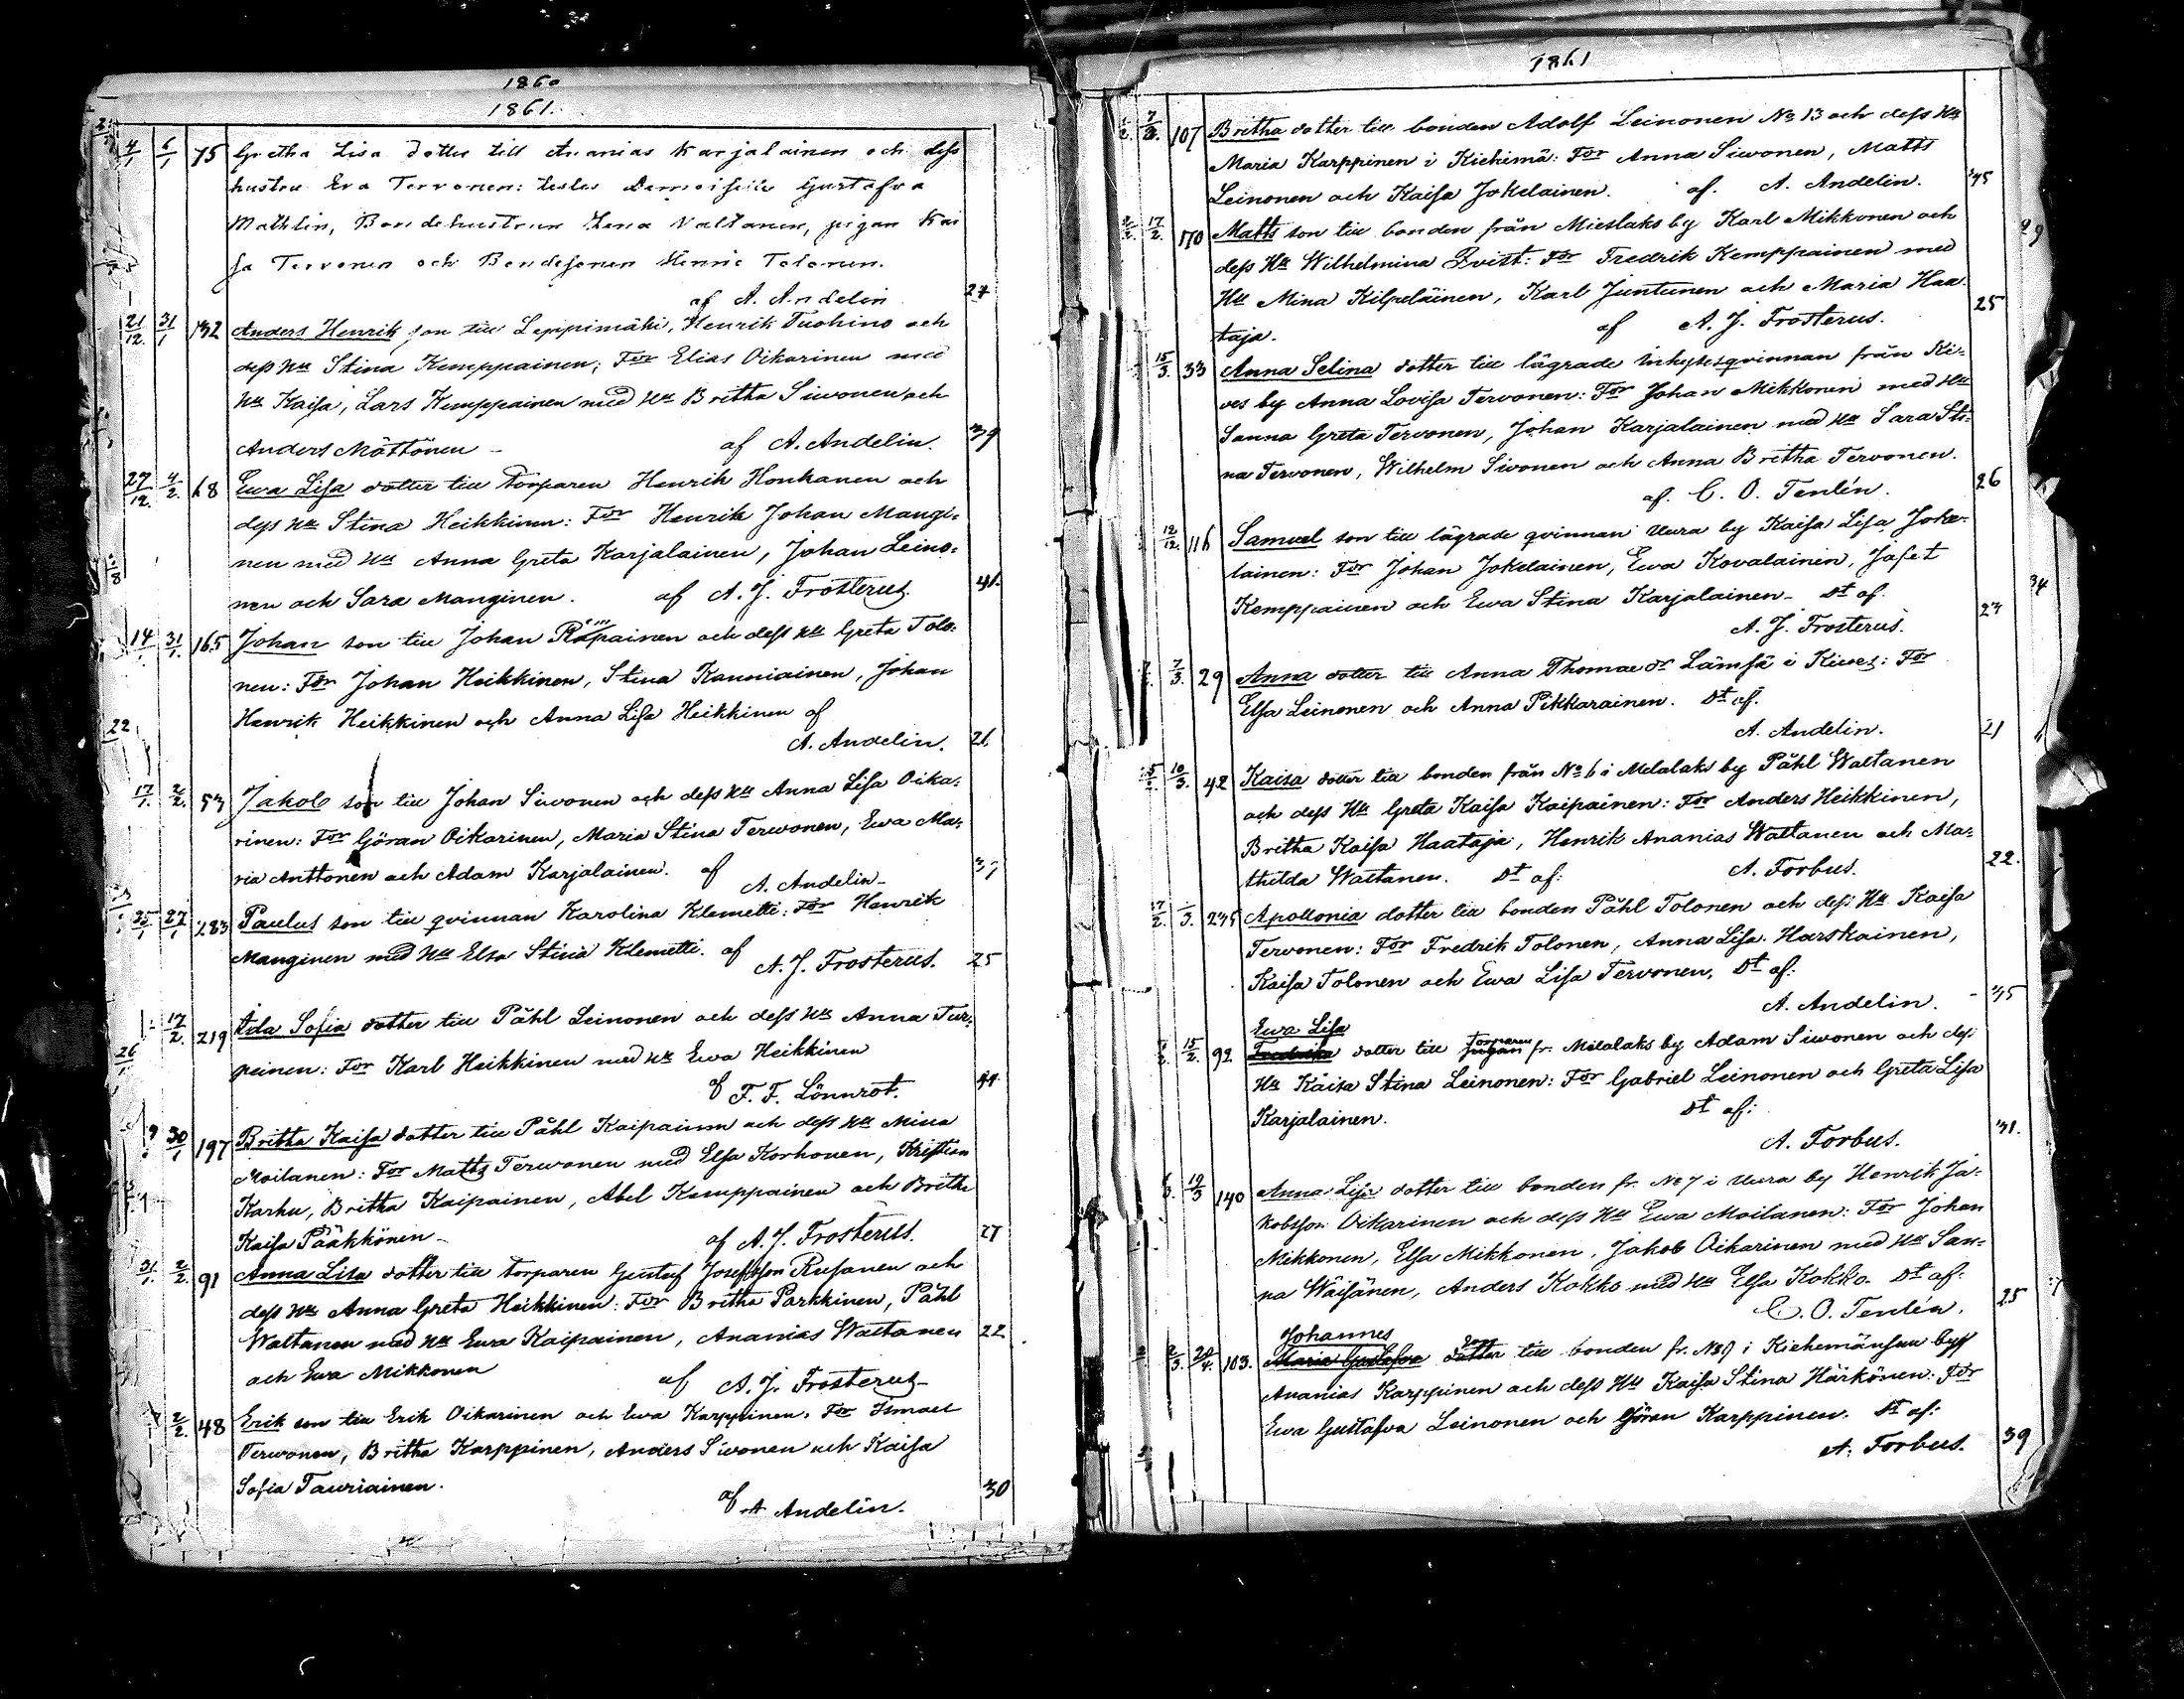 1860
1861.
4/1 6/1 75 Gretha Lisa dotter till Ananias Karjalainen och dess
hustru Eva Tervonen: testes Demoiselle Gustafva
Mathlin, Bondehustrun Lena Valtanen, pigan Kai
sa Tervonen och Bondesonen Henric Tolonen.
af A. Andelin 27
21/12. 31/1 132 Anders Henrik son till Leppimäki, Henrik Tuohino och
dess Hu Stina Kemppainen; For Elias Oikarinen med
Hu Kaisa, Lars Kemppainen med Hu Britha Siwonen och
Anders Möttönen – af A. Andelin. 39
27/12. 4/2. 68 Ewa Lisa dotter till Torparen Henrik Honkanen och
dess Hu Stina Heikkinen: For Henrik Johan Mangi=
nen med Hu Anna Greta Karjalainen, Johan Leino=
nen och Sara Manginen. af A. J. Frosterus. 41.
14/1. 31/1. 165 Johan son till Johan Rapainen och dess Hu Greta Tolo=
nen: For Johan Heikkinen, Stina Kauniainen, Johan
Henrik Heikkinen och Anna Lisa Heikkinen af
22 A. Andelin. 21.
17/1. 2/2. 53 Jakob son till Johan Siwonen och dess Hu Anna Lisa Oika=
rinen: For Göran Oikarinen, Maria Stina Terwonen, Ewa Ma=
ria Anttonen och Adam Karjalainen. af A. Andelin–
25/1 27/1 283 Paulus son till qvinnan Karolina Klemetti: For Henrik
Manginen med Hu Elsa Stina Klemetti. af A. J. Frosterus. 25
17/2. 219 Ida Sofia dotter till Påhl Leinonen och dess Hu Anna Tur=
peinen: For Karl Heikkinen med Hu Ewa Heikkinen
af F. F. Lönnrot.
30/1 197 Britha Kaisa dotter till Påhl Kaipainen och dess Hu Mina
Moilanen: For Matts Terwonen med Elsa Korhonen, Kristian
Karhu, Britha Kaipainen, Abel Kemppainen och Britha
Kaisa Pääkkönen– af A. J. Frosterus. 27
31/1. 2/2. 91 Anna Lisa dotter till torparen Gustaf Josefsson Rusanen och
dess Hu Anna Greta Heikkinen: For Britha Parkkinen, Påhl
Waltanen med Hu Ewa Kaipainen, Ananias Waltanen 22
och Ewa Mikkonen af A. J. Frosterus–
2/2. 48 Erik son till Erik Oikarinen och Ewa Karppinen. For Ismael
Terwonen, Britha Karppinen, Anders Siwonen och Kaisa
Sofia Tauriainen. 30
af A Andelin.
1861
107 Britha dotter till bonden Adolf Leinonen No 13 och dess Hu
Maria Karppinen i Kiehimä: For Anna Siwonen, Matts
Leinonen och Kaisa Jokelainen. af. A. Andelin. 45
2/2. 17/2. 170 Matts son till bonden från Mieslaks by Karl Mikkonen och
dess Hu Wilhelmina Qvist: For Fredrik Kemppainen med
Hu Mina Kilpeläinen, Karl Juntunen och Maria Haa=
taja. af A. J. Frosterus. 25
15/3. 33 Anna Selina dotter till lägrade inhyses qvinnan från Ki=
ves by Anna Lovisa Tervonen: For Johan Mikkonen med Hu
Sanna Greta Tervonen, Johan Karjalainen med Hu Sara Sti=
na Tervonen, Wilhelm Sivonen och Anna Britha Tervonen.
af. C. O. Tenlén. 26
12/12. 116 Samuel son till lägrade qvinnan Uura by Kaisa Lisa Joke=
lainen: For Johan Jokelainen, Ewa Kovalainen, Jafet
Kemppainen och Ewa Stina Karjalainen– Dt af. 34
A. J. Frosterus.
7/3. 29 Anna dotter till Anna Thomae dr Lämsä i Kiwes: For
Elsa Leinonen och Anna Pikkarainen. Dt af.
A. Andelin. 21
10/3. 42 Kaisa dotter till bonden från No 6 i Melalaks by Påhl Waltanen
och dess Hu Greta Kaisa Kaipainen: For Anders Heikkinen,
Britha Kaisa Haataja, Henrik Ananias Waltanen och Ma=
thilda Waltanen. Dt af: A. Forbus. 22.
17/2. /3. 235 Apollonia dotter till bonden Påhl Tolonen och dess Hu Kaisa
Tervonen: For Fredrik Tolonen, Anna Lisa Harskainen,
Kaisa Tolonen och Ewa Lisa Tervonen, Dt af:
A. Andelin. – 35
Ewa Lisa torparen
15/2. 92 Fredrika dotter till pigan fr. Melalaks by Adam Siwonen och dess
Hu Kaisa Stina Leinonen: For Gabriel Leinonen och Greta Lisa
Karjalainen. Dt af:
A. Forbus. 31.
19/3 140 Anna Lisa dotter till bonden fr. No 7 i Uura by Henrik Ja=
kobsson Oikarinen och dess Hu Ewa Moilanen: For Johan
Mikkonen, Elsa Mikkonen, Jakob Oikarinen med Hu San=
na Wäisänen, Anders Kokko med Hu Elsa Kokko. Dt af:
C. O. Tenlén. 25
Johannes son
2/3. 20/4. 103. Maria Gustafva dotter till bonden fr. No 9 i Kiehemänsuu by
Ananias Karppinen och dess Hu Kaisa Stina Härkönen: For
Ewa Gustafva Leinonen och Göran Karppinen. Dt af:
A. Forbus. 39